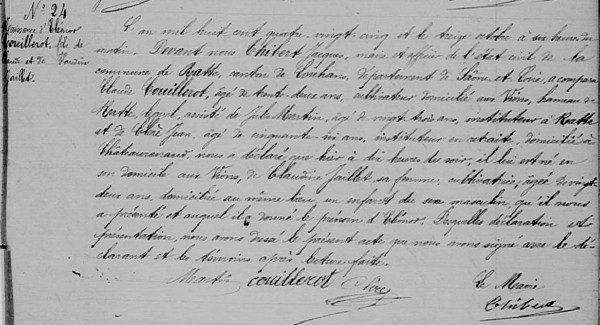 N° 24
Naissance d'Elénor
Couillerot, fils de
Claude et de Claudine
Jaillet.
L'an mil huit cent quatre vingt cinq et le treize octobre à six heures du
matin. Devant nous Thibert Jacques, maire et officier de l'état civil de la
commune de Ratte, canton de Louhans, département de Saône et Loire, a comparu
Claude Couillerot, âgé de trente deux ans, cultivateur domicilié aux Vions, hameau de
Ratte, lequel, assisté de Jules Martin, âgé de vingt trois ans, instituteur à Ratte
et de Clerc Jean âgé de cinquante six ans, instituteur en retraite, domicilié à
Châteaurenaud, nous a déclaré, que hier à dix heures du soir, il lui est né en
son domicile aux Vions, de Claudine Jaillet, sa femme, cultivatrice, âgée de vingt-
deux ans, domiciliée au même lieu, un enfant du sexe masculin, qu'il nous
a présenté et auquel il a donné le prénom d'Elénor. Desquelles déclaration et
présentation, nous avons dressé le présent acte que nous avons signé avec le dé-
clarant et les témoins après lecture faite.
Martin Couillerot Clerc
Le Maire
Thibert